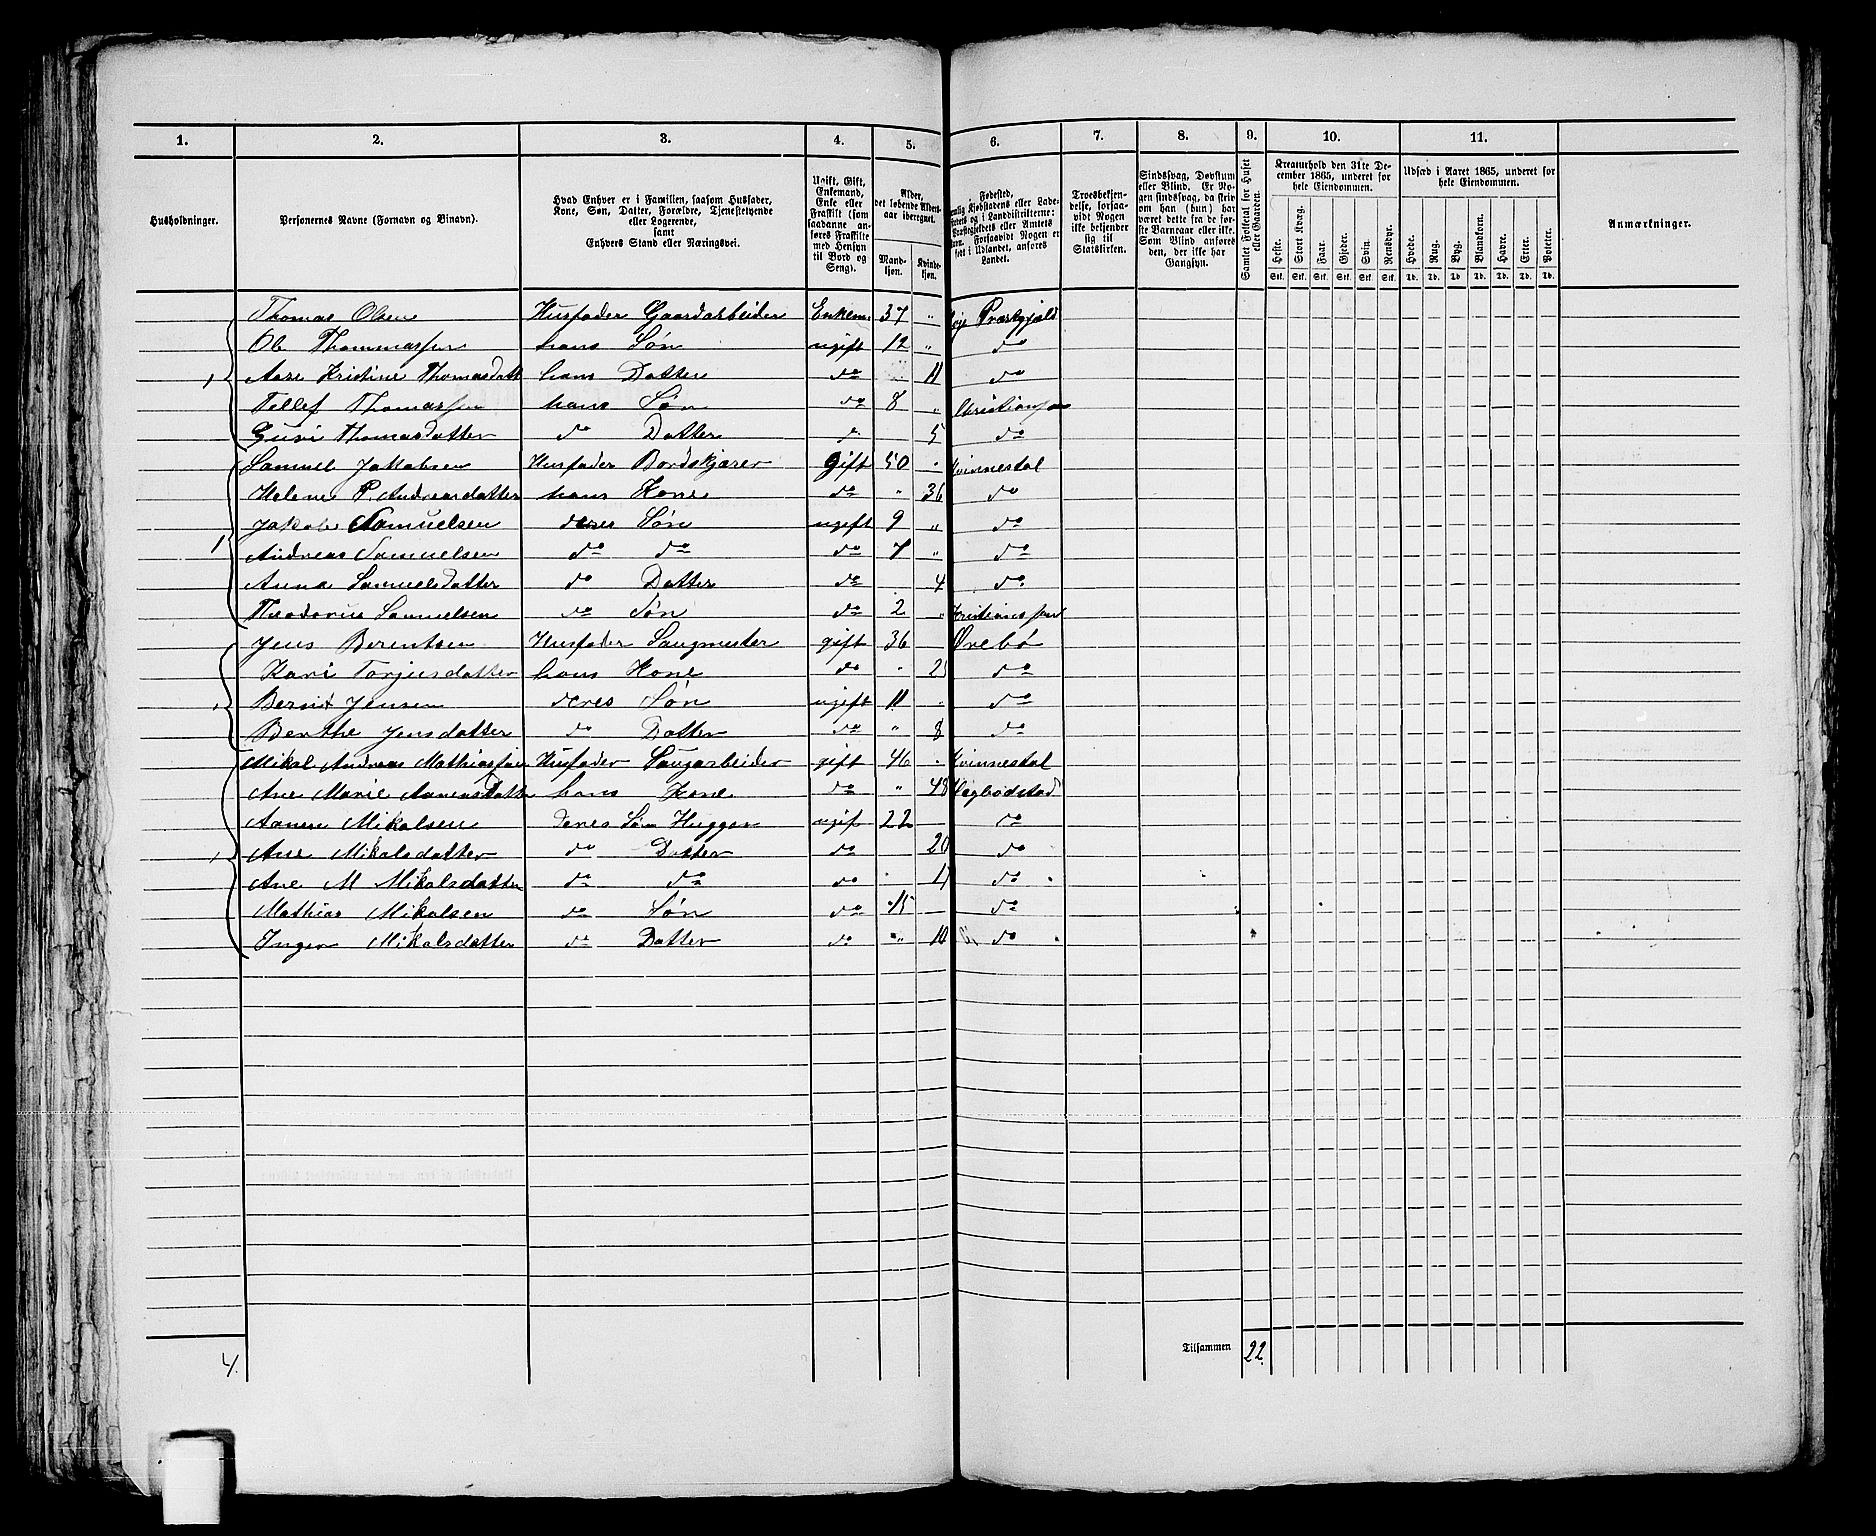 1. 2. 3. 4. 5. 6. 7. 8. 9. 10. 11.
Husholdninger.
Personernes Navne (Fornavn og Binavn).
Hvad Enhver er i Familien, saasom Husfader,
Kone, Søn, Datter, Forældre, Tjenestetyende
eller Logerende,
samt
Enhvers Stand eller Næringsvei.
Ugift, Gift,
Enkemand,
Enke eller
Fraskilt (som
saadanne an-
føres Fraskilte
med Hensyn
til Bord og
Seng).
Alder,
det løbende Alders-
aar iberegnet.
Mand-
kjøn.
Kvinde-
kjøn.
Fødested,
Kjøbstadens eller Lade-
i Landdistrikterne:
Præstegjeldets eller Amtets
Navn. Forsaavidt Nogen er
født i Udlandet, anføres
Landet.
Troesbekjen-
delse, forsaa-
vidt Nogen
ikke bekjender
sig til
Statskirken.
Sindssvag, Døvstum
eller Blind. Er No-
gen sindssvag, da skriv
om han (hun) har
været dette fra de før-
ste Barneaar eller ikke.
Som Blind anføres
den, der ikke har
Gangsyn.
Samlet Folketal for Huset
eller Gaarden.
Kreaturhold den 31te De-
cember 1865, underet for
hele Eiendommen.
Heste. Stort Kvæg. Faar. Gjeder. Svin. Rensdyr.
Stk. Stk. Stk. Stk. Stk. Stk.
Udsæd i Aaret 1865, underet for
hele Eiendommen.
Hvede. Rug. Byg. Blandkorn. Havre. Erter. Poteter.
Td. Td. Td. Td. Td. Td. Td.
Anmærkninger.
Thomas Olsen Husfader Gaardarbeider Enkem. 37 " Præstgjæld
Ole Thommassen hans Søn ugift 12 " do
1 Aase Kristine Thomasdatt hans Datter do 11 do
Tellef Thomassen hans Søn do 8 " Christiansa
Guri Thomasdatter do Datter d. 5 do
Samuel Jakobsen Husfader Bordskjærer gift 50 Kvinnesdal
Helene P. Andreasdatter hans Kone do " 36 do
1 Jakob Samuelsen deres Søn ugift 9 " do
Andreas Samuelsen do do do 7 " do
Anna Samuelsdatter do Datter do 4 do
Theodorius Samuelsen do Søn do 2 " Kristianssand
Jens Berentsen Husfader Saugmester gift 36 Øvebø
Kari Torjusdatter hans Kone do " do
1 Jensen deres Søn ugift 11 do
Berthe Jensdatter do Datter do " 8 do
Mikal Andreas Mathiassen Husfader Saugarbeider gift 46 Kvinnesdal
Ane Marie hans Kone do " 48 Hægbødstad
Mikalsen deres Søn Hugger ugif 22 do
1 Ane Mikalsdatter do Datter do 20 do
Ane M Mikalsdatter do do do do
Mathias Mikalsen do Søn do 15 do
Inger Mikalsdatter do Datter do " 10 do
4. Tilsammen 22.